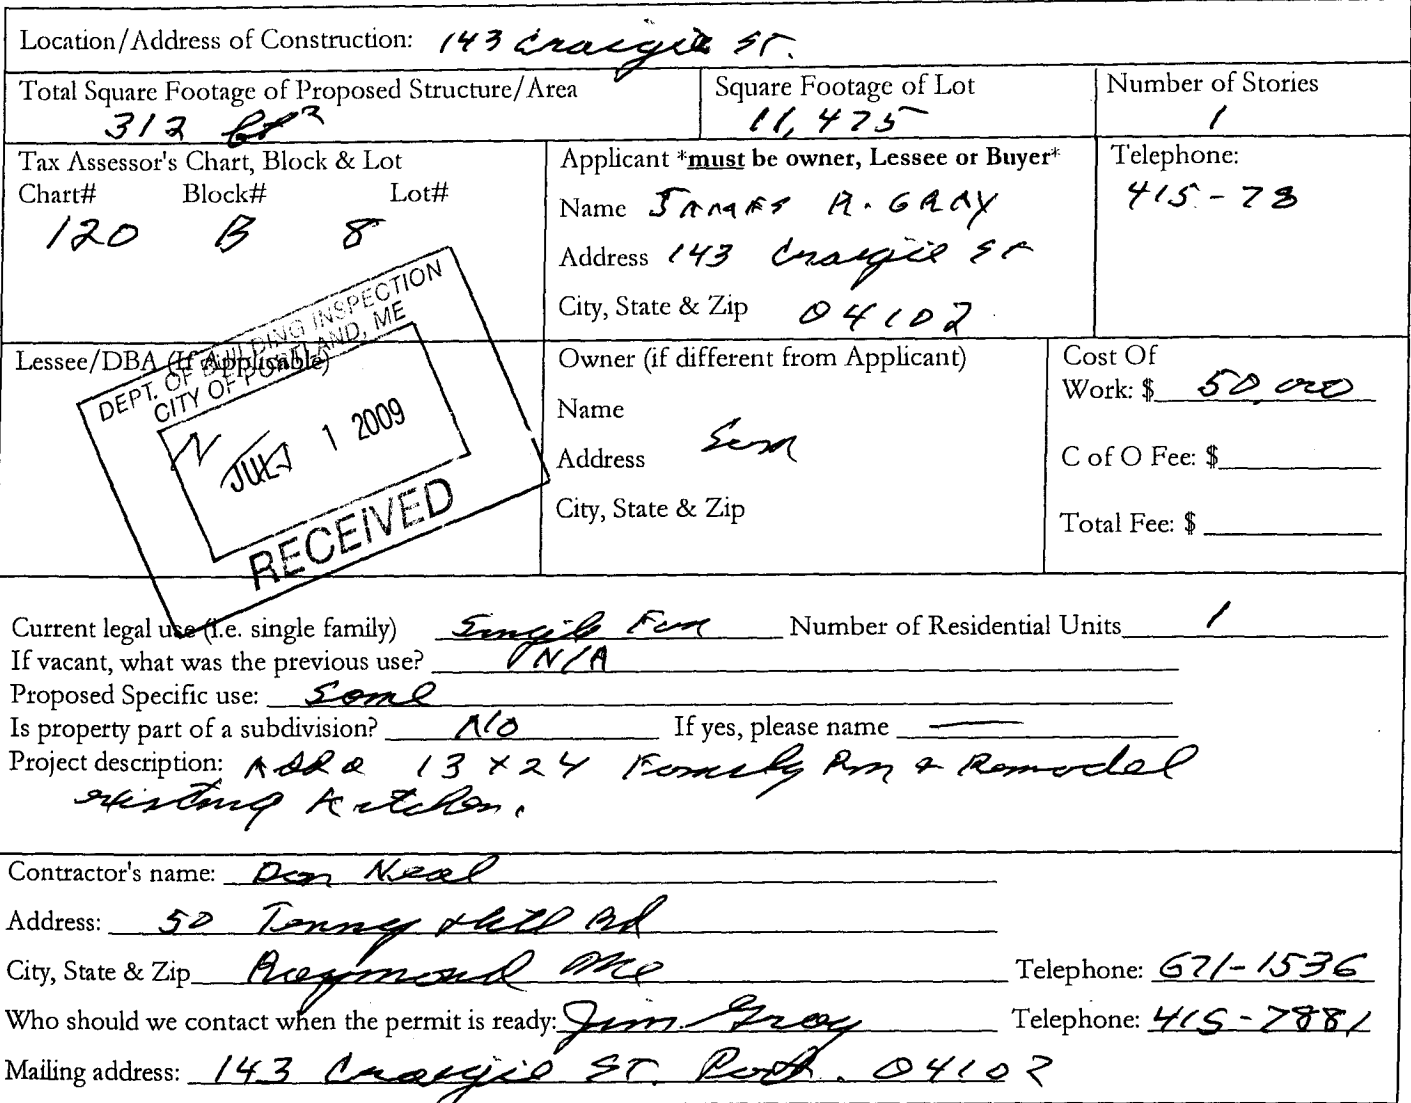 Location/Address of Construction: 143 Craigie ST.
Total Square Footage of Proposed Structure/Area
312 ft²
Square Footage of Lot
11,475
Number of Stories
1
Tax Assessor's Chart, Block & Lot
Chart# Block# Lot#
120 B 8
Applicant *must be owner, Lessee or Buyer*
Name JAMES R. GRAY
Address 143 Craigie ST
City, State & Zip 04102
Telephone:
415-78
DEPT. OF BUILDING INSPECTION
CITY OF PORTLAND, ME
JUL 1 2009
RECEIVED
Lessee/DBA (If Applicable)
Owner (if different from Applicant)
Name
Address
City, State & Zip
Cost Of
Work: $ 50,000
C of O Fee: $
Total Fee: $
Current legal use (i.e. single family) Single Fam Number of Residential Units 1
If vacant, what was the previous use? N/A
Proposed Specific use: Same
Is property part of a subdivision? No If yes, please name
Project description: 13 x 24 Family Rm & Remodel
existing Kitchen.
Contractor's name: Don Neal
Address: 50 Tenny Hill Rd
City, State & Zip Raymond Me Telephone: 671-1536
Who should we contact when the permit is ready: Jim Gray Telephone: 415-7881
Mailing address: 143 Craigie ST. Port. 04102